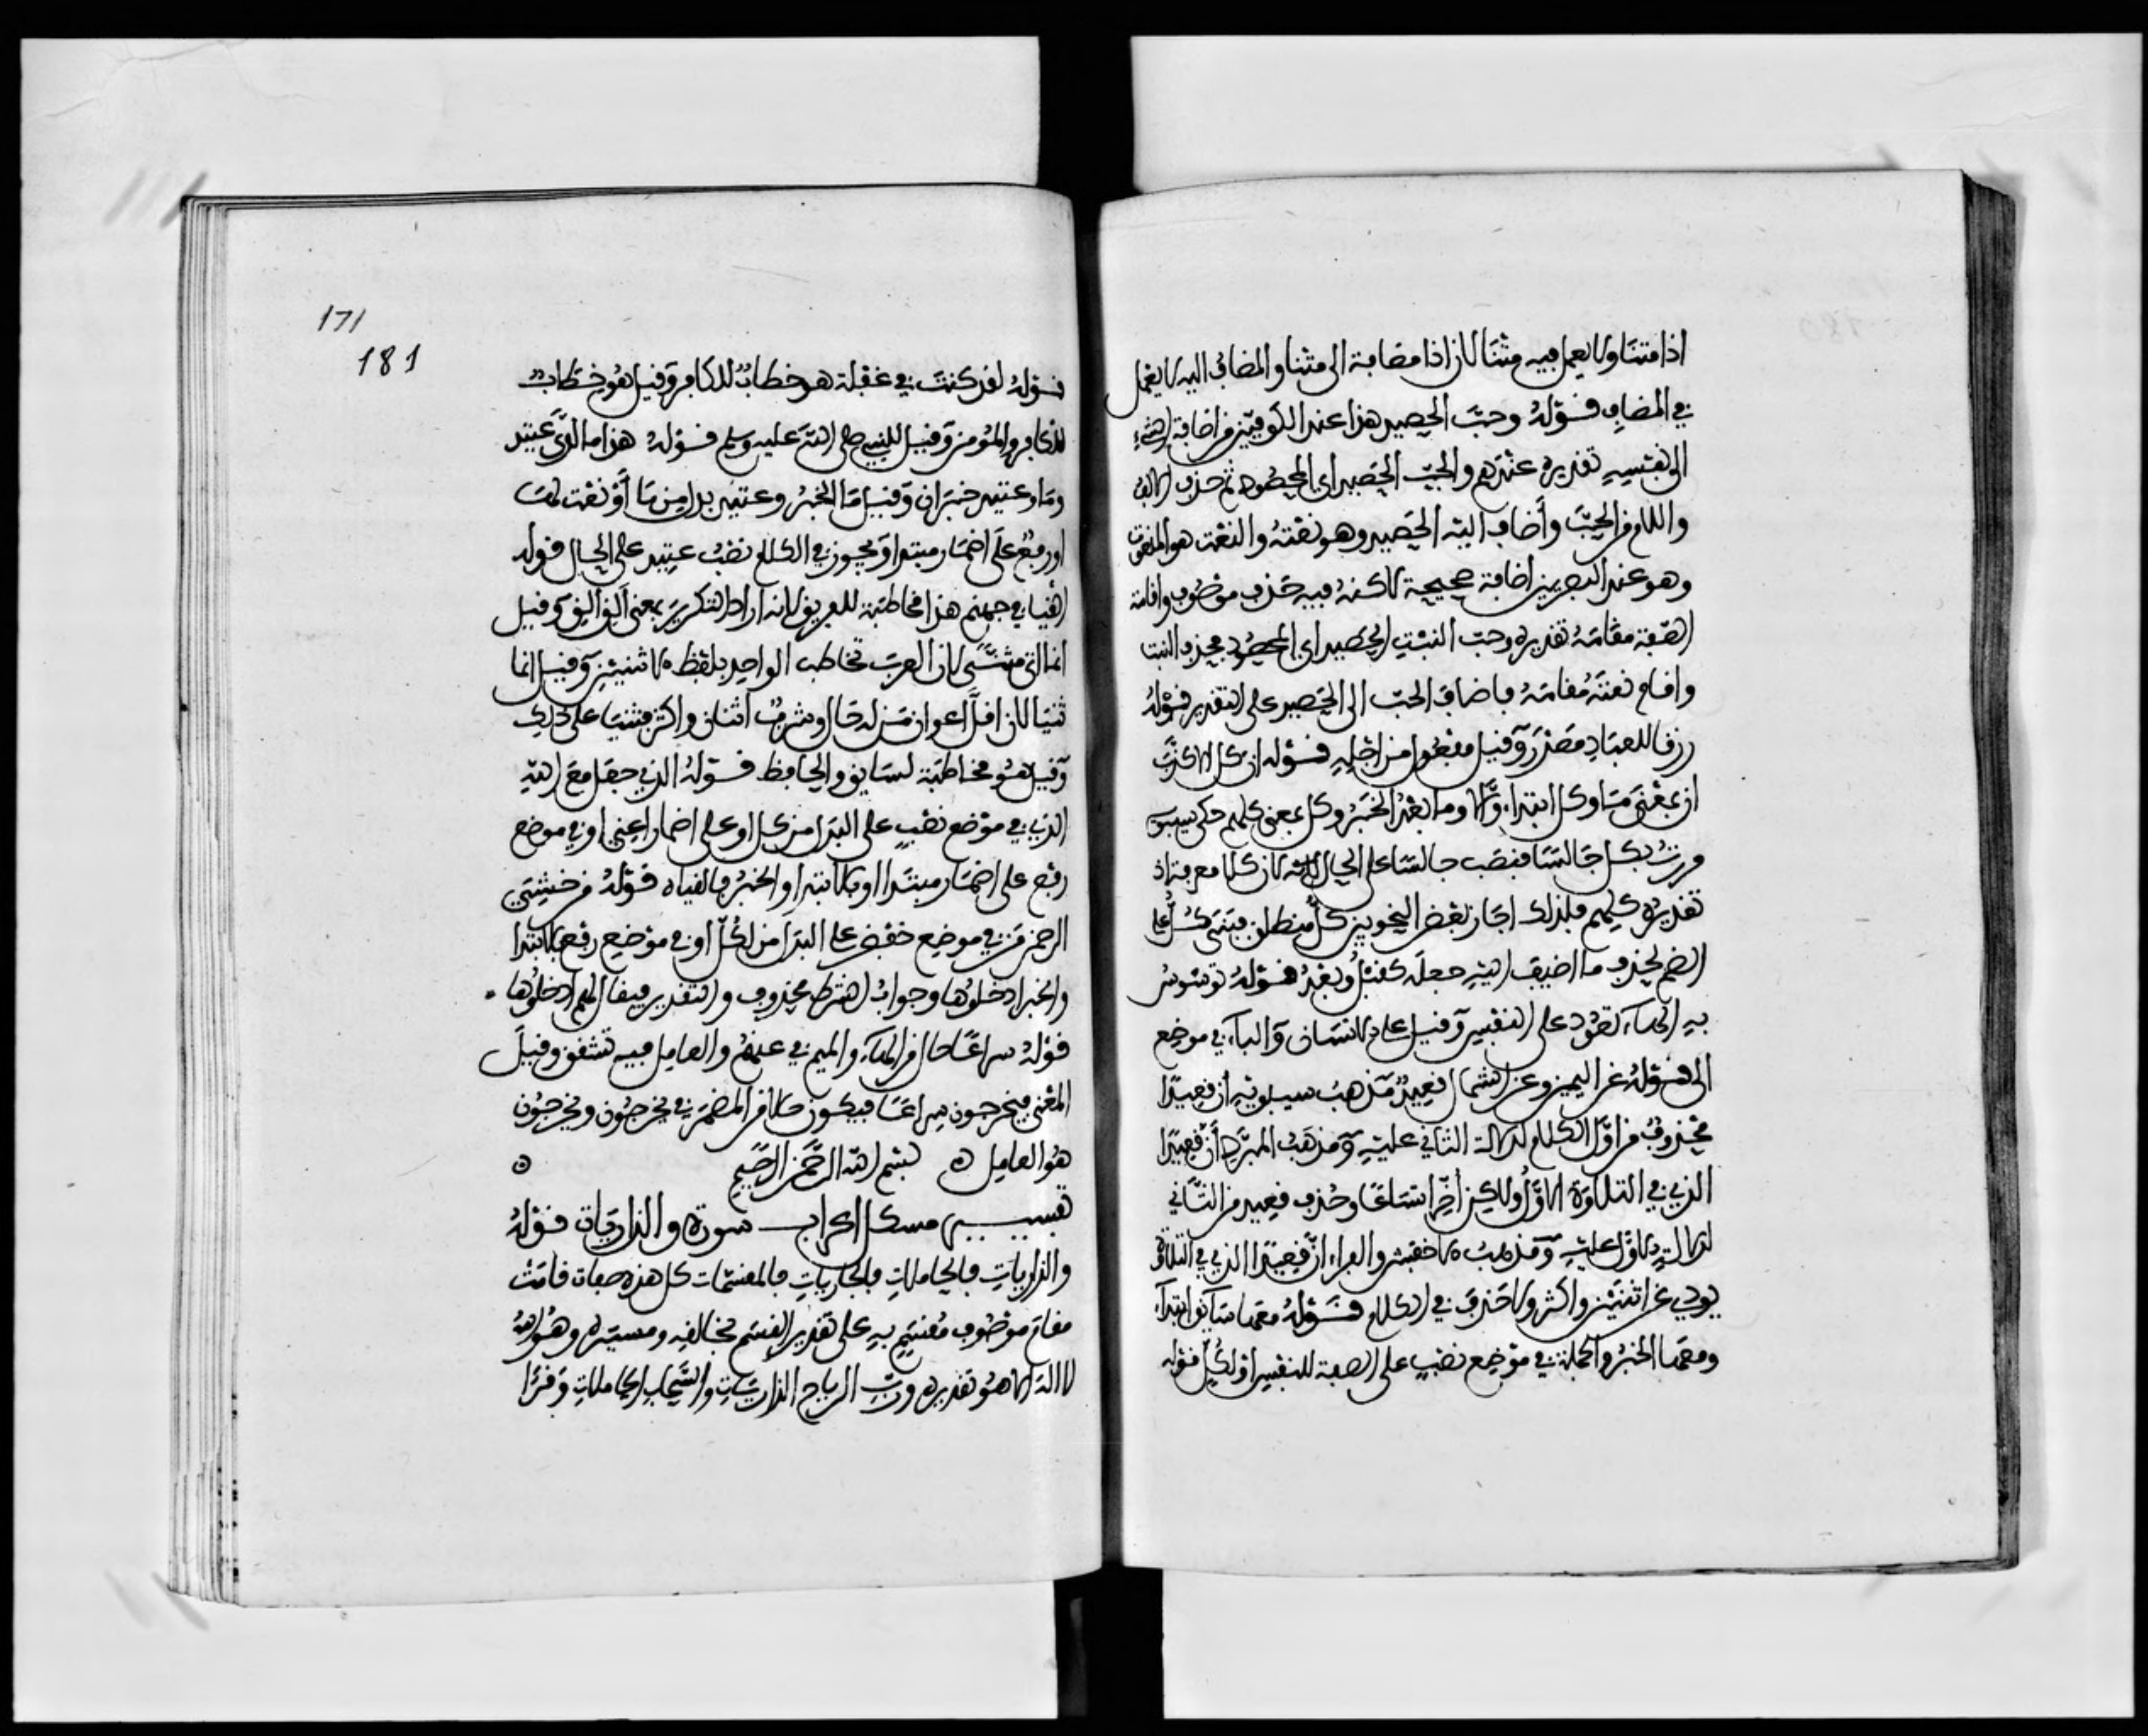 اذا متنا ولا يعمل فيه متنا لان اذا مضافة الى متنا والمضاف اليه لا يعمل
في المضاف قوله وحب الحصيد هذا عند الكوفيين من اضافة الشيء
الى نفسه تقديره عندهم والحب الحصيد اي المحصود ثم حذف الالف
واللام من الحب وأضاف اليه الحصيد وهو نعته والنعت هو المنعوت
وهو عند البصريين اضافة صحيحة لاكنه فيه حذف موصوف واقامة
الصفة مقامه تقديره وحب النبت الحصيد اي المحصود فحذف النبت
واقام نعته مقامه فاضاف الحب الى الحصيد على التقدير قوله
رزقا للعباد مصدر وقيل مفعول من اجله قوله ان كل الا كذب
ان بمعنى ما وكل ابتداء والا وما بعد الخبر وكل بمعنى كلهم حكى سيبويه
مررت بكل جالسا فنصب جالسا على الحال لان كلا معرفة اذ
تقديره كلهم فلذلك اجاز بعض النحويين كل منطلق فبنى كل على
الضم لحذف ما اضيف اليه جعله كقبل وبعد قوله توسوس
به الهاء تعود على النفس وقيل على الانسان والباء في موضع
الى قوله عن اليمين وعن الشمال قعيد مذهب سيبويه ان قعيدا
محذوف من اول الكلام لدلالة الثاني عليه ومذهب المبرد أن قعيدا
الذي في التلاوة الاول ولكن أخر اتساعا وحذف قعيد من الثاني
لدلالة الاول عليه ومذهب الاخفش والفراء ان قعيدا الذي في التلاوة
يودي عن اثنين واكثر ولا حذف في الكلام قوله معها سايق ابتداء
ومعها الخبر والجملة في موضع نصب على الصفة للنفس او لكل قوله
171
181
قوله لقد كنت في غفلة هو خطاب للكافر وقيل هو خطاب
للكافر والمؤمن وقيل للنبي صلى الله عليه وسلم قوله هذا ما لدي عتيد
وما وعتيد خبران وقيل ما الخبر وعتيد بدل من ما أو نعت لما
او رفع على اضمار مبتدا ويجوز في الكلام نصب عتيد على الحال قوله
القيا في جهنم هذا مخاطبة للقرين لانه اراد التكرير بمعنى ألق ألق وقيل
انما اتى مثنى لان العرب تخاطب الواحد بلفظ الاثنين وقيل انما
ثنيا لان اقل اعوان من له حال وشرف اثنان واكثر فثنيا على ذلك
وقيل هو مخاطبة لسايق والحافظ قوله الذي جعل مع الله
الذي في موضع نصب على البدل من كل او على اضمار اعني او في موضع
رفع على اضمار مبتدا او بالابتدا والخبر فالقياه قوله من خشي
الرحمن من في موضع خفض على البدل من لكل او في موضع رفع بالابتدا
والخبر ادخلوها وجواب الشرط محذوف والتقدير فيقال لهم ادخلوها
قوله سراعا حال من الهاء والميم في عنهم والعامل فيه تشقق وقيل
المعنى فيخرجون سراعا فيكون حالا من المضمر في يخرجون ويخرجون
هو العامل ه بسم الله الرحمن الرحيم ه
تفسير مشكل اعراب سورة والذاريات قوله
والذاريات فالحاملات فالجاريات فالمقسمات كل هذه صفات قامت
مقام موصوف مقسم به على تقدير القسم بخالقه ومسيره وهو الله
لا اله الا هو تقديره ورب الرياح الذاريات والسحاب الحاملات وقرا